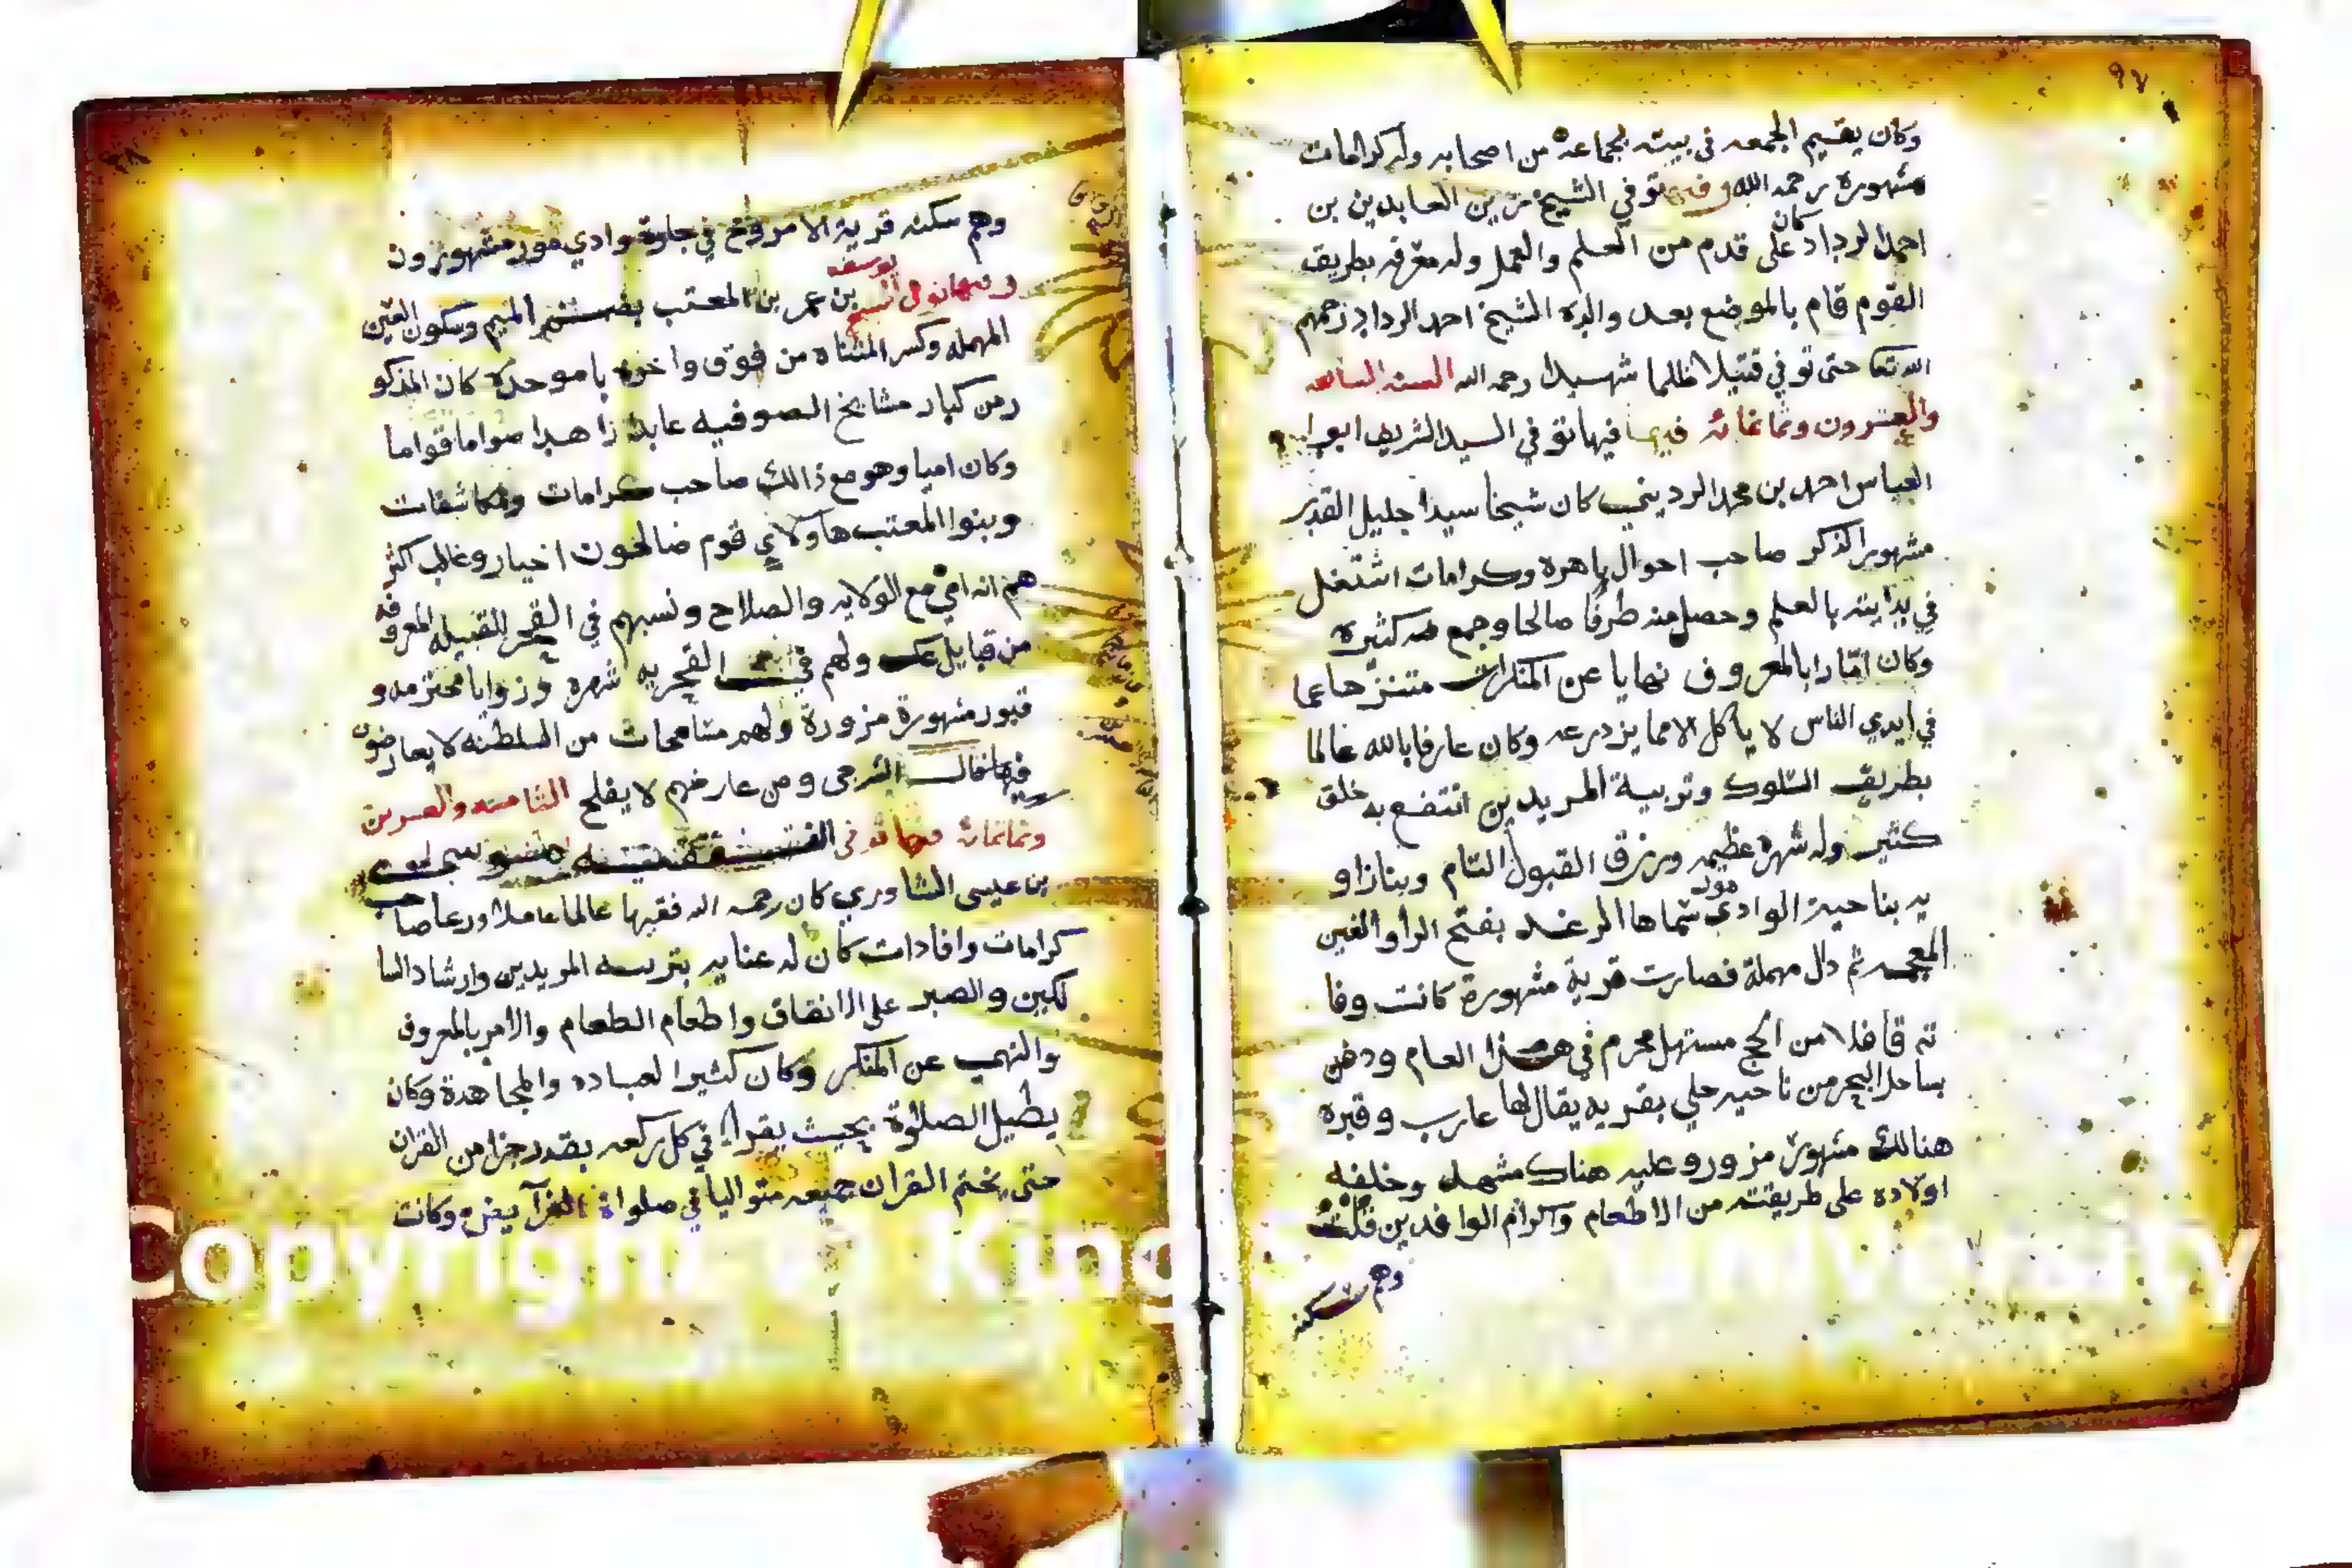 ٩٧
وكان يقيم الجمعه في بيته بجماعة من اصحابه وله كرامات
مشهورة رحمه الله وفيها توفي الشيخ زين العابدين بن
احمد الرداد كان على قدم من العلم والعمل وله معرفه بطريق
القوم قام بالموضع بعد والده الشيخ احمد الرداد رحمهم
الله تعا حتى توفي قتيلا ظلما شهيدا رحمه الله السنه السابعه
والعشرون وثمانمائه فيها توفي السيد الشريف ابو
العباس احمد بن محمد الرديني كان شيخا سيدا جليل القدر
مشهور الذكر صاحب احوال باهرة وكرامات اشتغل
في بدايته بالعلم وحصل منه طرفا صالحا وجمع كثيره
وكان امّارا بالمعروف نهايا عن المنكرات متنزها عما
في ايدي الناس لا ياكل الا مما يزدرعه وكان عارفا بالله عالما
بطريق السلوك وتربية المريدين انتفع به خلق
كثير وله شهرة عظيمه ورزق القبول التام وبنا زاو
يه بناحية الوادي مور سماها الرغد بفتح الرا والغين
المعجمه ثم دال مهملة فصارت قرية مشهورة كانت وفا
ته قافلا من الحج مستهل محرم في هذا العام ودفن
بساحل البحر من ناحيه حلي بقريه يقال لها عارب وقبره
هنالك مشهور مزور وعليه هناك مشهد وخلفه
اولاده على طريقته من الاطعام واكرام الوافدين قلت
وهم سكنه
وهم سكنه قرية الامروخ في جازة وادي مور مشهورون
وفيها توفي الشيخ يوسف بن عمر بن المعتب بضم الميم وسكون العين
المهمله وكسر المثناه من فوق واخره با موحدة كان المذكو
ر من كبار مشايخ الصوفيه عابدا زاهدا صواما قواما
وكان اميا وهو مع ذالك صاحب كرامات ومكاشفات
وبنوا المعتب هاولاي قوم صالحون اخيار وغالب اكثر
هم انه امي مع الولايه والصلاح ونسبهم في القحر القبيله المعروفه
من قبايل عك ولهم في القحريه شهره وزوايا محترمه و
قبور مشهورة مزورة ولهم مسامحات من السلطنه لا يعارضون
فيها قال الشرجى ومن عارضهم لا يفلح الثامنه والعشرين
وثمانمائه فيها توفى
بن عيسى الشاوري كان رحمه الله فقيها عالما عاملا ورعا صاحب
كرامات وافادات كان له عنايه بتربيه المريدين وارشاد السا
لكين والصبر على الانفاق واطعام الطعام والامر بالمعروف
والنهي عن المنكر وكان كثير العباده والمجاهدة وكان
يطيل الصلوة بحيث يقرا في كل ركعه بقدر جزا من القران
حتى يختم القران جميعه متواليا في صلواة الفرآيض وكانت